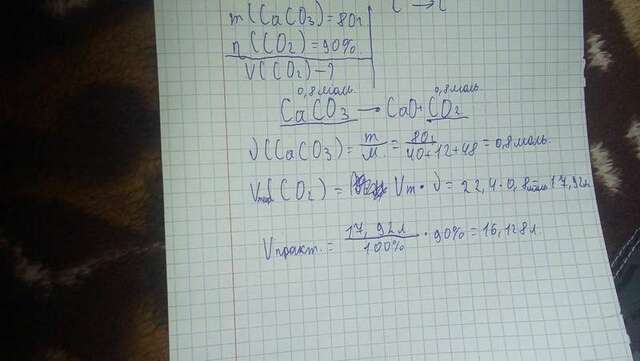 m(CaCO₃)=80г
η(CO₂)=90%
V(CO₂)-?
0,8моль 0,8моль
CaCO₃ → CaO+CO₂
ν(CaCO₃)= m/M = 80г/40+12+48 =0,8моль
(CO₂) = Vm·ν=22,4·0,8=17,92л
Vпракт.= 17,92л/100% ·90%=16,128л